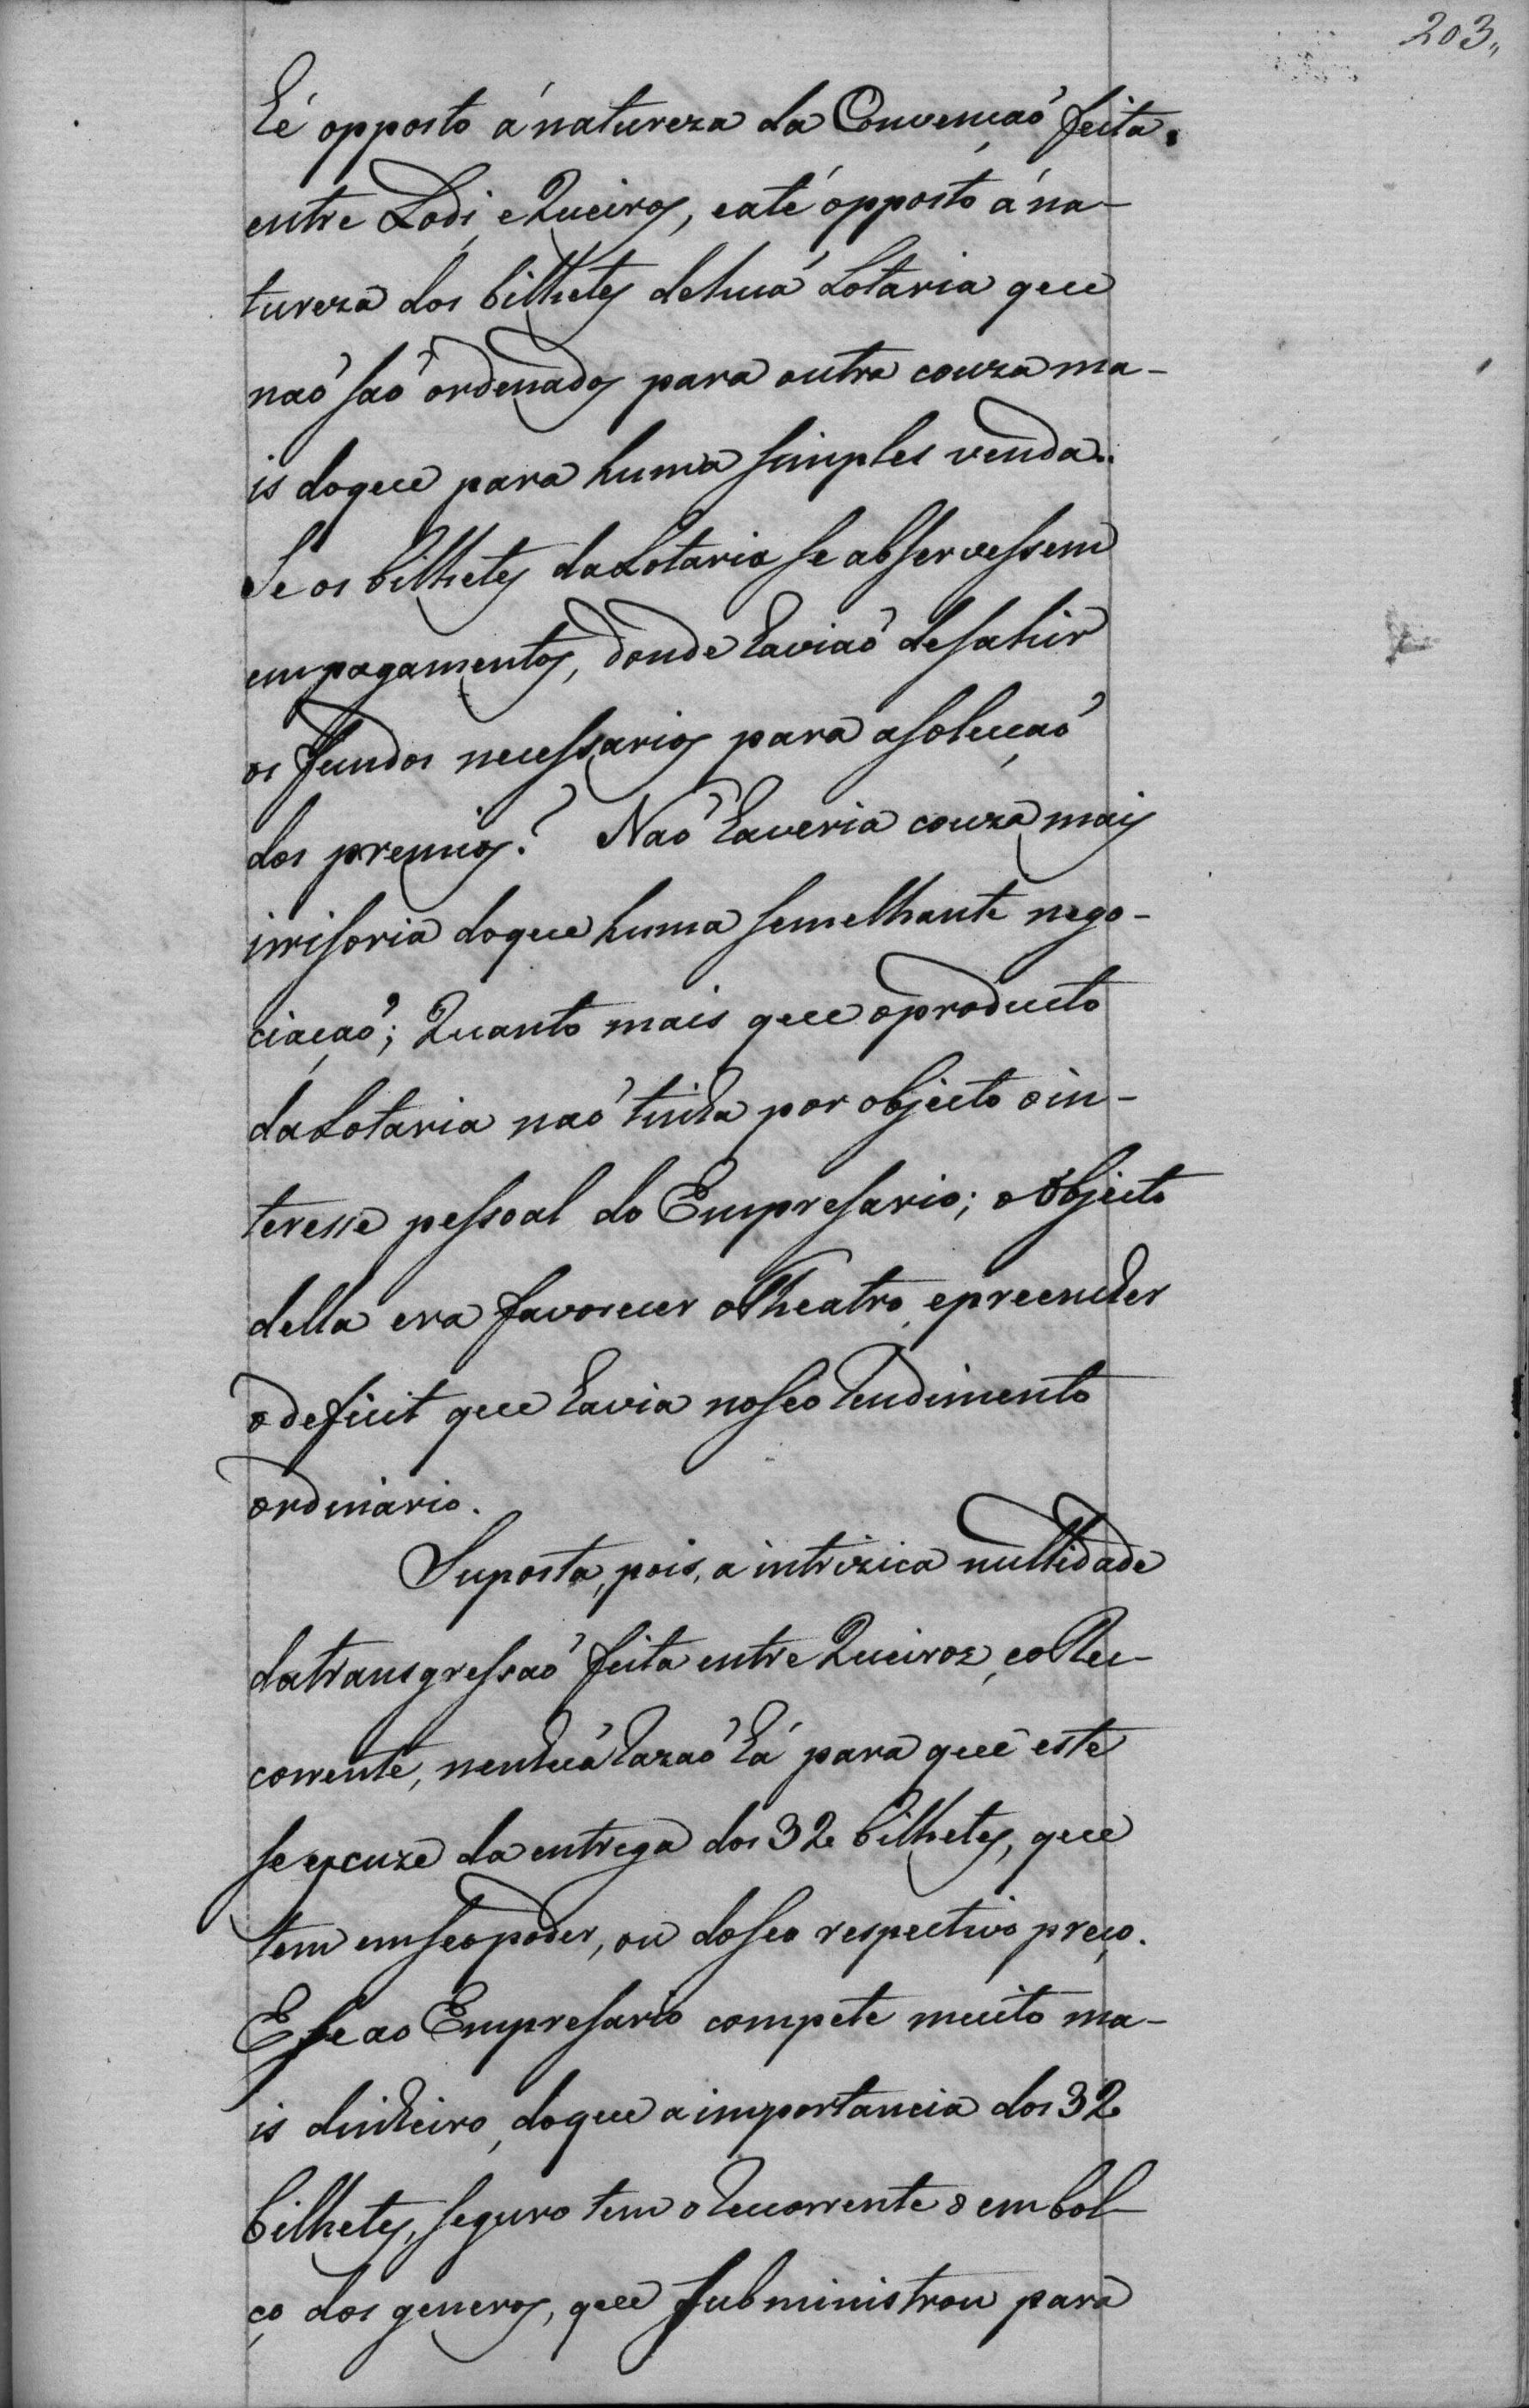 203,,
Hé opposto á natureza da Convençaõ feita
entre Lodi, e Queiros, e até opposto á na-
tureza dos bilhetes de huã Lotaria que
naõ saõ ordenados para outra couza ma-
is do que para huma simples venda..
Se os bilhetes da Lotaria se absorvessem
em pagamentos, donde haviaõ de sahir
os fundos necessarios para a soluçaõ
dos premios? Naõ haveria couza mais
irrisoria do que huma semelhante nego-
ciaçaõ; Quanto mais que o producto
da Lotaria naõ tinha por objecto o in-
teresse pessoal do Empresario; o objecto
della era favorecer o Theatro, e preencher
o deficit que havia no seo rendimento
ordinario.
Suposta, pois, a intrizica nullidade
da transgressaõ feita entre Queiroz, e o Re-
corrente, nenhuã razaõ há para que este
se escuze da entrega dos 32 bilhetes, que
tem em seo poder, ou do seo respectivo preço.
E se ao Empresario compete muito ma-
is dinheiro, do que a importancia dos 32
bilhetes, seguro tem o recorrente o embol-
ço dos generos, que subministrou para